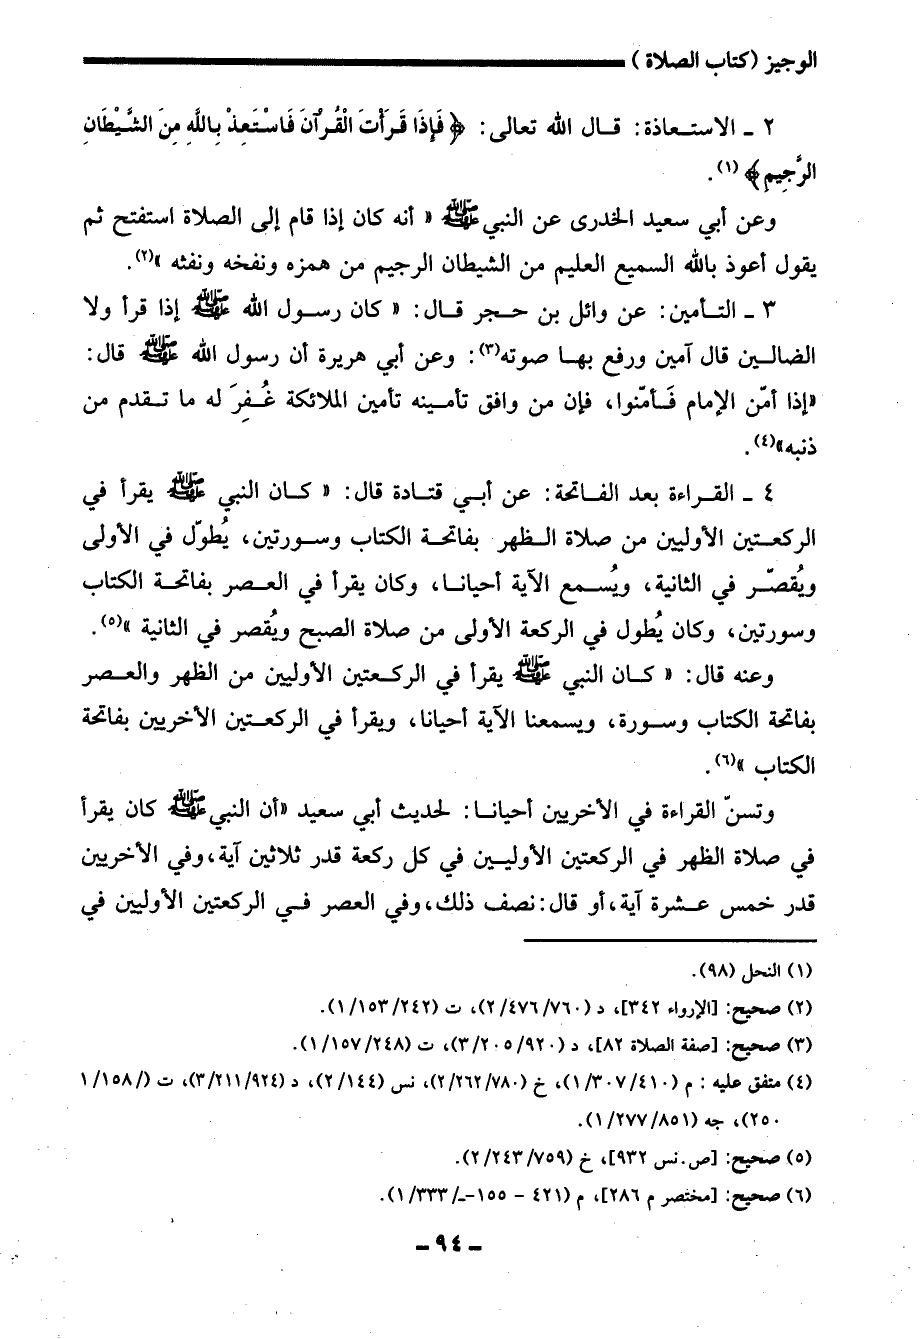 الوجيز (كتاب الصلاة )
٢ ـ الاستعاذة: قال الله تعالى: ﴿ فَإِذَا قَرَأْتَ الْقُرْآنَ فَاسْتَعِذْ بِاللَّهِ مِنَ الشَّيْطَانِ
الرَّجِيمِ﴾ (١).
وعن أبي سعيد الخدرى عن النبي ﷺ « أنه كان إذا قام إلى الصلاة استفتح ثم
يقول أعوذ بالله السميع العليم من الشيطان الرجيم من همزه ونفخه ونفثه »(٢).
٣ ـ التأمين: عن وائل بن حجر قال: « كان رسول الله ﷺ إذا قرأ ولا
الضالين قال آمين ورفع بها صوته(٣): وعن أبي هريرة أن رسول الله ﷺ قال:
«إذا أمّن الإمام فَأمّنوا، فإن من وافق تأمينه تأمين الملائكة غُفِرَ له ما تقدم من
ذنبه»(٤).
٤ ـ القراءة بعد الفاتحة: عن أبي قتادة قال: « كان النبي ﷺ يقرأ في
الركعتين الأوليين من صلاة الظهر بفاتحة الكتاب وسورتين، يُطوّل في الأولى
ويُقصّر في الثانية، ويُسمع الآية أحيانا، وكان يقرأ في العصر بفاتحة الكتاب
وسورتين، وكان يُطول في الركعة الأولى من صلاة الصبح ويُقصر في الثانية »(٥).
وعنه قال: « كان النبي ﷺ يقرأ في الركعتين الأوليين من الظهر والعصر
بفاتحة الكتاب وسورة، ويسمعنا الآية أحيانا، ويقرأ في الركعتين الأخريين بفاتحة
الكتاب »(٦).
وتسنّ القراءة في الأخريين أحيانا: لحديث أبي سعيد «أن النبي ﷺ كان يقرأ
في صلاة الظهر في الركعتين الأوليين في كل ركعة قدر ثلاثين آية، وفي الأخريين
قدر خمس عشرة آية، أو قال: نصف ذلك، وفي العصر في الركعتين الأوليين في
(١) النحل (٩٨).
(٢) صحيح: [الإرواء ٣٤٢]، د (٢/٤٧٦/٧٦٠)، ت (١/١٥٣/٢٤٢).
(٣) صحيح: [صفة الصلاة ٨٢]، د (٣/٢٠٥/٩٢٠)، ت (١/١٥٧/٢٤٨).
(٤) متفق عليه : م (١/٣٠٧/٤١٠)، خ (٢/٢٦٢/٧٨٠)، نس (٢/١٤٤)، د (٣/٢١١/٩٢٤)، ت (/١/١٥٨
٢٥٠)، جه (١/٢٧٧/٨٥١).
(٥) صحيح: [ص.نس ٩٣٢]، خ (٢/٢٤٣/٧٥٩).
(٦) صحيح: [مختصر م ٢٨٦]، م (٤٢١ - ١٥٥-/١/٣٣٣).
ـ ٩٤ ـ